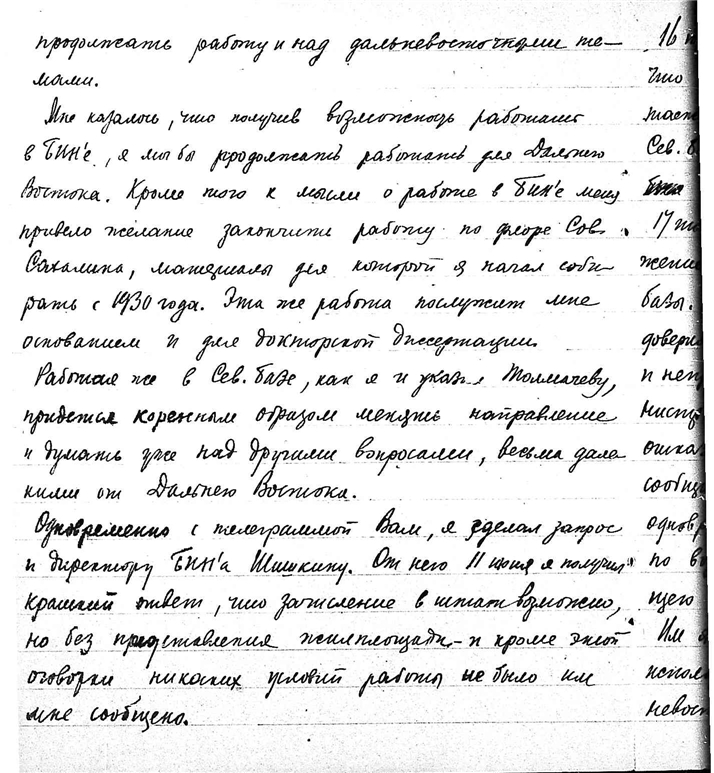 продолжать работу и над дальневосточными те-
мами.
Мне казалось, что получив возможность работать
в БИН'е, я мог бы продолжать работать для Дальнего
Востока. Кроме того к мысли о работе в БИН'е меня
привело желание закончить работу по флоре Сов.
Сахалина, материалы для которой я начал соби-
рать с 1930 года. Эта же работа послужит мне
основанием и для докторской диссертации.
Работая же в Сев. базе, как я и указал Толмачеву,
придется коренным образом менять направление
и думать уже над другими вопросами, весьма дале
кими от Дальнего Востока.
Одновременно с телеграммой Вам, я сделал запрос
и директору БИН'а Шишкину. От него 11 июня я получил
краткий ответ, что зачисление в штат возможно,
но без представления жилплощади - и кроме этой
оговорки никаких условий работы не было им
мне сообщено.
16
что
Сев. б
17
жение
базы.
довери
и неп
отказ
сообщ
одновр
по в
щего
Им
испол
невост